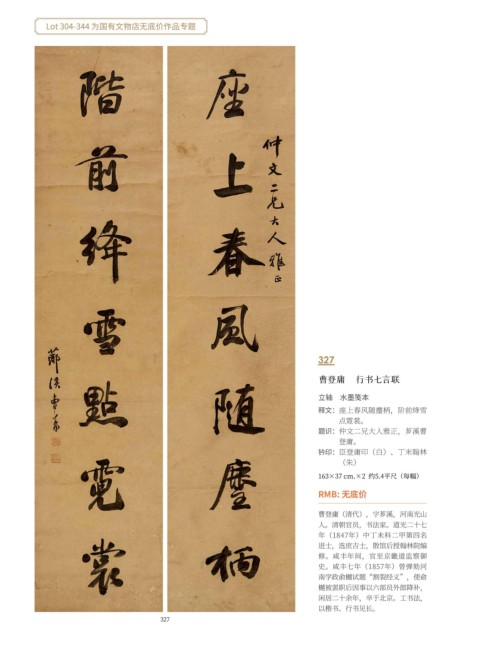 Lot 304-344 为国有文物店无底价作品专题
座上春风随麈柄
仲文二兄大人雅正
階前絳雪點霓裳
327
曹登庸 行书七言联
立轴 水墨笺本
释文：座上春风随麈柄，阶前绛雪
点霓裳。
题识：仲文二兄大人雅正，芗溪曹
登庸。
钤印：臣登庸印（白）、丁未翰林
（朱）
163×37 cm.×2 约5.4平尺（每幅）
RMB: 无底价
曹登庸（清代），字芗溪，河南光山
人。清朝官员，书法家。道光二十七
年（1847年）中丁未科二甲第四名
进士，选庶吉士，散馆后授翰林院编
修。咸丰年间，官至京畿道监察御
史。咸丰七年（1857年）曾弹劾河
南学政俞樾试题“割裂经义”，使俞
樾被罢职后因事以六部员外郎降补，
闲居二十余年，卒于北京。工书法，
以楷书、行书见长。
327